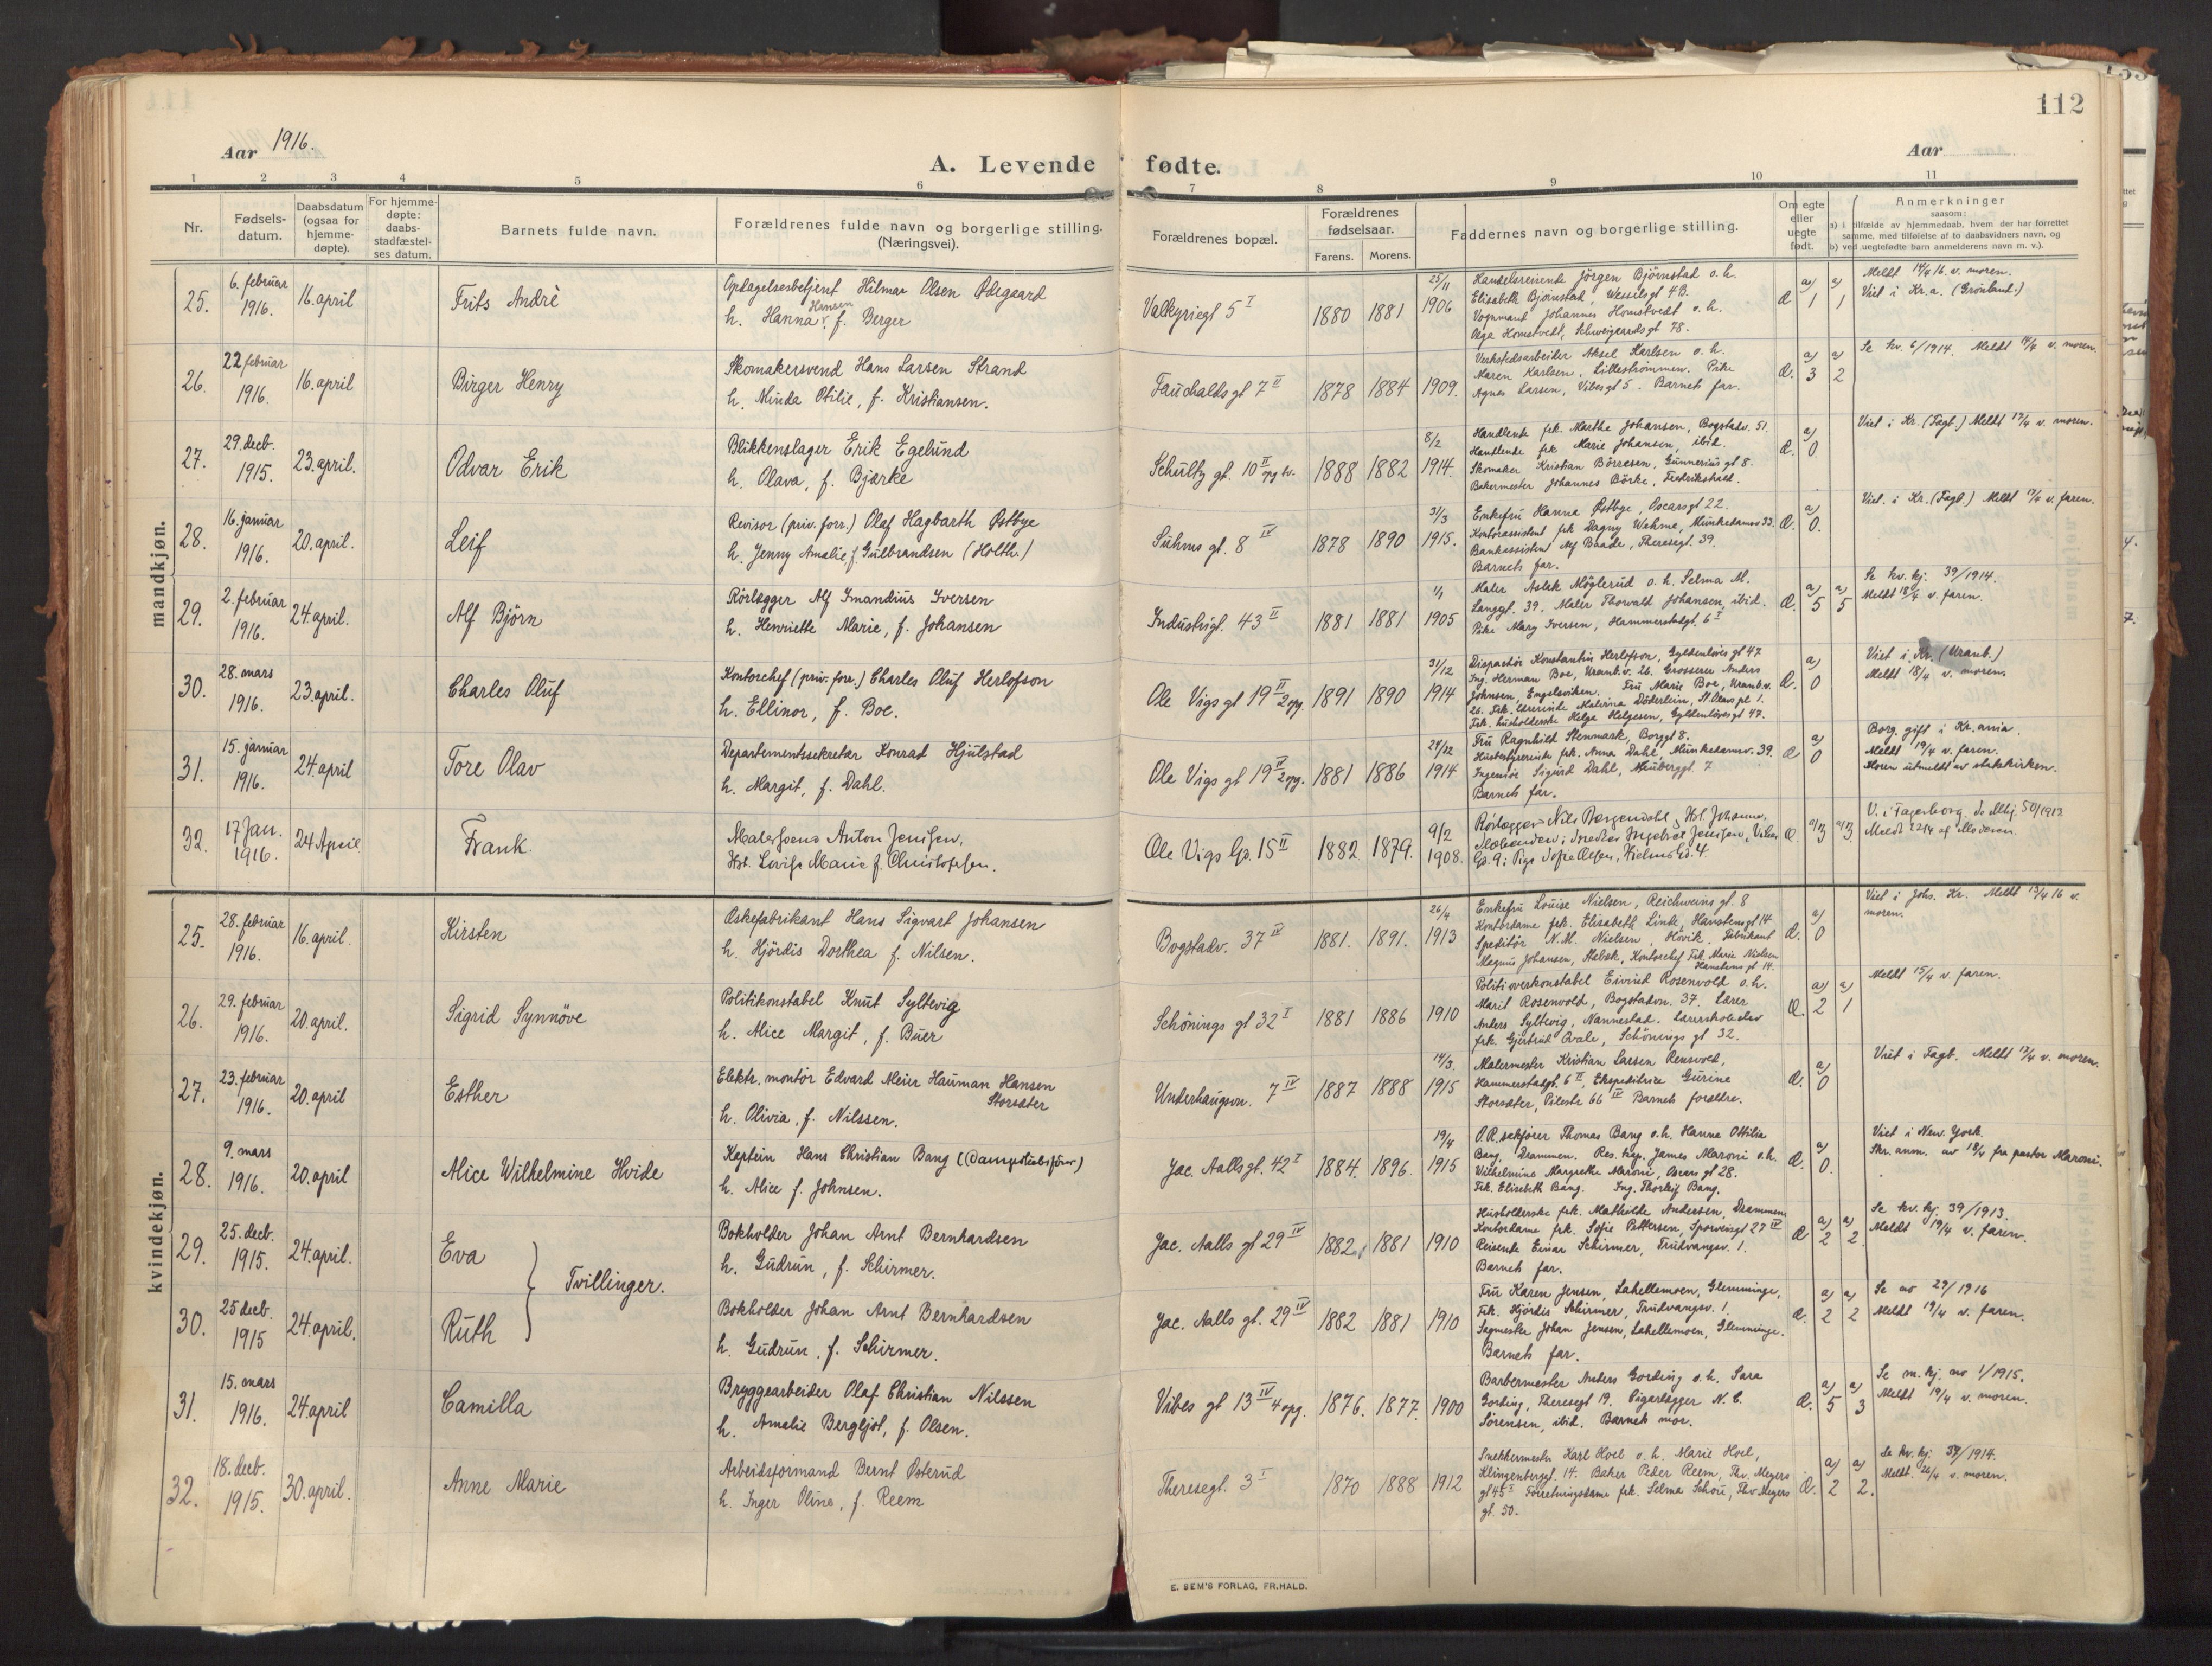 112
Aar 1916.
A. Levende fødte.
Aar
1 2 3 4 5 6 7 8 9 10 11
Nr.
Fødsels-
datum.
Daabsdatum
(ogsaa for
hjemme-
døpte).
For hjemme-
døpte:
daabs-
stadfæstel-
ses datum.
Barnets fulde navn.
Forældrenes fulde navn og borgerlige stilling.
(Næringsvei).
Forældrenes bopæl.
Forældrenes
fødselsaar.
Farens. Morens.
Faddernes navn og borgerlige stilling.
Om egte
eller
uegte
født.
Anmerkninger
saasom:
a) i tilfælde av hjemmedaab, hvem der har forrettet
samme, med tilføielse af to daabsvidners navn, og
b) ved uegtefødte barn anmelderens navn m. v.).
mandkjøn.
25. 6. februar 1916. 16. april Frits Andrè
Opdagelsesbetjent Hilmar Olsen Ødegaard
h. Hanna Hansen f. Berger
Valkyriegt 5 I 1880 1881 25/11 1906
Handelsreisende Jörgen Bjørnstad o. h.
Elisabeth Bjørnstad, Wesselsgt 4B.
Vognmand Johannes Homstvedt o. h.
Olga Homstvedt, Schweigaardsgt 78.
Æ a) 1 a) 1
Meldt 14/4 16. v. moren.
Viet i Kr.a. (Grønland.)
26. 22 februar 1916. 16. april Birger Henry
Skomakersvend Hans Larsen Strand
h. Minda Otilie, f. Kristiansen.
Fauchaldsgt 7 II 1878 1884 1909.
Verkstedsarbeider Aksel Karlsen o. h.
Maren Karlsen, Lillestrømmen. Pike
Agnes Larsen, Vibesgt 5. Barnets far.
Æ. a) 3 a) 2
Se kv. 6/1914. Meldt 14/4 v. moren.
27. 29. decb. 1915. 23. april. Odvar Erik
Blikkenslager Erik Egelund
h. Olava, f. Bjærke
Schultz gt. 10 II 1888 1882 8/2 1914.
Handlende frk. Marthe Johansen, Bogstadv. 51.
Handlende frk Marie Johansen, ibid.
Skomaker Kristian Börresen, Gunnerius gt 8.
Bakermester Johannes Börke, Fredrikshald.
Æ. a) 0
Viet i Kr. (Fagb.) Meldt 17/4 v. moren.
28. 16. januar 1916. 20. april. Leif
Revisor (priv. forr.) Olaf Hagbarth Østbye
h. Jenny Amalie, f. Gulbrandsen (Holth.)
Suhms gt. 8 IV 1878 1890 31/3 1915.
Enkefru Hanna Østbye, Oscarsgt 22.
Kontorassistent frk Dagny Wehme, Munkedamsv 33.
Bankassistent Alf Baade, Theresegt. 39.
Barnets far.
Æ. a) 0.
Viet. i Kr. (Fagb.) Meldt 17/4 v. faren.
29. 2. februar 1916. 24. april. Alf Bjørn
Rörlægger Alf Imandius Iversen
h. Henriette Marie, f. Johansen
Industrigt. 43 II 1881 1881 1/1 1905
Maler Aslak Möglerud o. h. Selma M.
Langgt. 39. Maler Thorwald Johansen, ibid.
Pike Mary Iversen, Hammerstadgt. 6 I
Æ. a) 5 a) 5
Se kv. kj. 39/1914.
Meldt 18/4 v. faren.
30. 28. mars 1916. 23. april. Charles Oluf
Kontorchef (priv. forr.) Charles Oluf Herlofson
h. Ellinor, f. Boe.
Ole Vigs gt 19 II 2 opg. 1891 1890 31/12 1914
Dispachør Konstantin Herlofson, Gyldenløves gt 47
Ing. Herman Boe, Uranb.v. 26. Grosserer Anders
Johnsen, Engelsviken. Fru Marie Boe, Uranb.v.
26. Frk. lærerinde Malvina Döderlein, St. Olavs pl 1.
Frk. husholderske Helga Helgesen, Gyldenløvesgt 47.
Æ. a) 0
Viet i Kr. (Uranb.)
Meldt 18/4 v. moren.
31. 15. januar 1916. 24. april Tore Olav
Departementssekretær Konrad Hjulstad
h. Margit, f. Dahl.
Ole Vigs gt 19 IV 2 opg. 1881 1886 1914
Fru Ragnhild Stenmark, Borggt 8.
Husbestyrerinde frk. Anna Dahl, Munkedamsv. 39.
Ingeniør Sigurd Dahl, 7
Barnets far.
Æ a) 0
Borg. gift i Kr.ania.
Meldt 19/4 v. faren.
Moren utmeldt av statskirken.
32. 17 Jan. 1916. 24 April Frank
Malersvend Anton Jensen,
Hst. Lovise Marie f. Christofersen.
Ole Vigs Gd. 15 II 1882 1879. 9/2 1908.
Rörlægger Nils Bergendahl, Hst. Johanne,
Ingebret Jensen, Vibes
Gd. 9; Pige Sofie Olsen, Hjelms Gd. 4.
Æ a) 3 a) 3
V. i Fagerborg. 50/1913.
Meldt 22/4 af Moderen.
kvindekjøn.
25. 28. februar 1916. 16. april. Kirsten
Æskefabrikant Hans Sigvart Johansen
h. Hjördis Dorthea f. Nilsen.
Bogstadv. 37 IV 1881. 1891. 26/4 1913
Enkefru Louise Nielsen, Reichweins gt. 8
Kontordame frk. Elisabeth Linde, Hanstensgt 14
Speditör N. M. Nielsen, Hövik. Fabrikant
Magnus Johansen, Stabæk, Kontorchef Frk. Marie Nielsen
Hanstens gt 14.
Æ. a) 0
Viet i Johs. Kr. Meldt 13/4 16 v.
moren.
26. 29. februar 1916. 20. april. Sigrid Synnöve
Politikonstabel Knut Syltevig
h. Alice Margit, f. Buer
Schönings gt 32 I 1881 1886 1910
Politioverkonstabel Eivind Rosenvold o. h.
Marit Rosenvold, Bogstadvn. 37. Lærer
Anders Syltevig, Nannestad. Lærerskoleelev
frk. Gjertrud Ovale, Schönings gt 32.
Æ. a) 2 a) 1
Meldt 15/4 v. faren.
27. 23. februar 1916. 20. april Esther
Elektr. montör Edvard Meier Hauman Hansen
Storsæter
h. Olivia, f. Nilssen.
Underhaugsvn. 7 IV 1887 1888 14/3. 1915
Malermester Kristian Larsen Rensvold,
Hammerstadgt. 6 II, Ekspeditrice Gurine
Storsæter, Pilestr 66 IV Barnets forældre.
Æ. a) 0
Viet i Fagb. Meldt 17/4 v. moren.
28. 9. mars 1916. 20. april Alice Wilhelmine Hvide
Kaptein Hans Christian Bang (Dampskibsfører)
h. Alice f. Johnsen.
Jac. Aallsgt. 42 I 1884. 1896. 19/4 1915
O.R. sakfører Thomas Bang o. h. Hanna Ottilia
Bang, Drammen. Res. kap. James Maroni o. h.
Wilhelmine Margrethe Maroni, Oscars gt 28.
Frk. Elisabeth Bang. Ing. Thorleif Bang.
Æ. a) 0.
Viet i New. York.
Skr. anm. av 18/4 fra pastor Maroni.
29. 25. decb. 1915. 24. april. Eva
Tvillinger.
Bokholder Johan Arnt Bernhardsen
h. Gudrun, f. Schirmer.
Jac. Aalls gt 29 IV 1882 1881 1910
Husholderske frk. Mathilde Andersen, Drammen
Kontordame frk. Sofie Pettersen, Sporveisgt 27 IV
Reisende Einar Schirmer, Trudvangsv. 1.
Barnets far.
Æ a) 2 a) 2.
Se kv. kj. 39/1913.
Meldt 19/4 v. faren.
30. 25 decb. 1915 24. april. Ruth
Bokholder Johan Arnt Bernhardsen
h. Gudrun, f. Schirmer.
Jac. Aalls gt. 29 IV 1882 1881 1910
Fru Karen Jensen, Lahellemoen, Glemminge,
Frk. Hjördis Schirmer, Trudvangsv. 1.
Sagmester Johan Jensen, Lahellemoen, Glemminge.
Barnets far.
Æ. a) 2 a) 2
Se no 29/1916
Meldt 19/4 v. faren.
31. 15. mars 1916. 24. april Camilla
Bryggearbeider Olaf Christian Nilssen
h. Amalie Bergljot, f. Olsen.
Vibes gt 13 IV 4 opg. 1876. 1877. 1900
Barbermester Anders Gording o. h. Sara
Gording, Theresegt 19. Cigarlægger N. C.
Sørensen, ibid. Barnets mor.
Æ. a) 5 a) 3
Se m. kj. no 1/1915.
Meldt 19/4 v. moren.
32. 18. decb. 1915. 30. april. Anne Marie
Arbeidsformand Bernt Østerud
h. Inger Oline, f. Reem
Theresegt. 3 I 1870 1888 1912
Snekkermester Karl Hoel o. h. Marie Hoel,
Klingenberggt. 14. Baker Peder Reem, Thv. Meyers
gt 45 I Forretningsdame frk. Selma Schou, Thv Meyers
gt. 50.
Æ. a) 2 a) 2.
Se kv. kj. 39/1914.
Meldt 26/4 v. moren.
E. SEM'S FORLAG, FR.HALD.